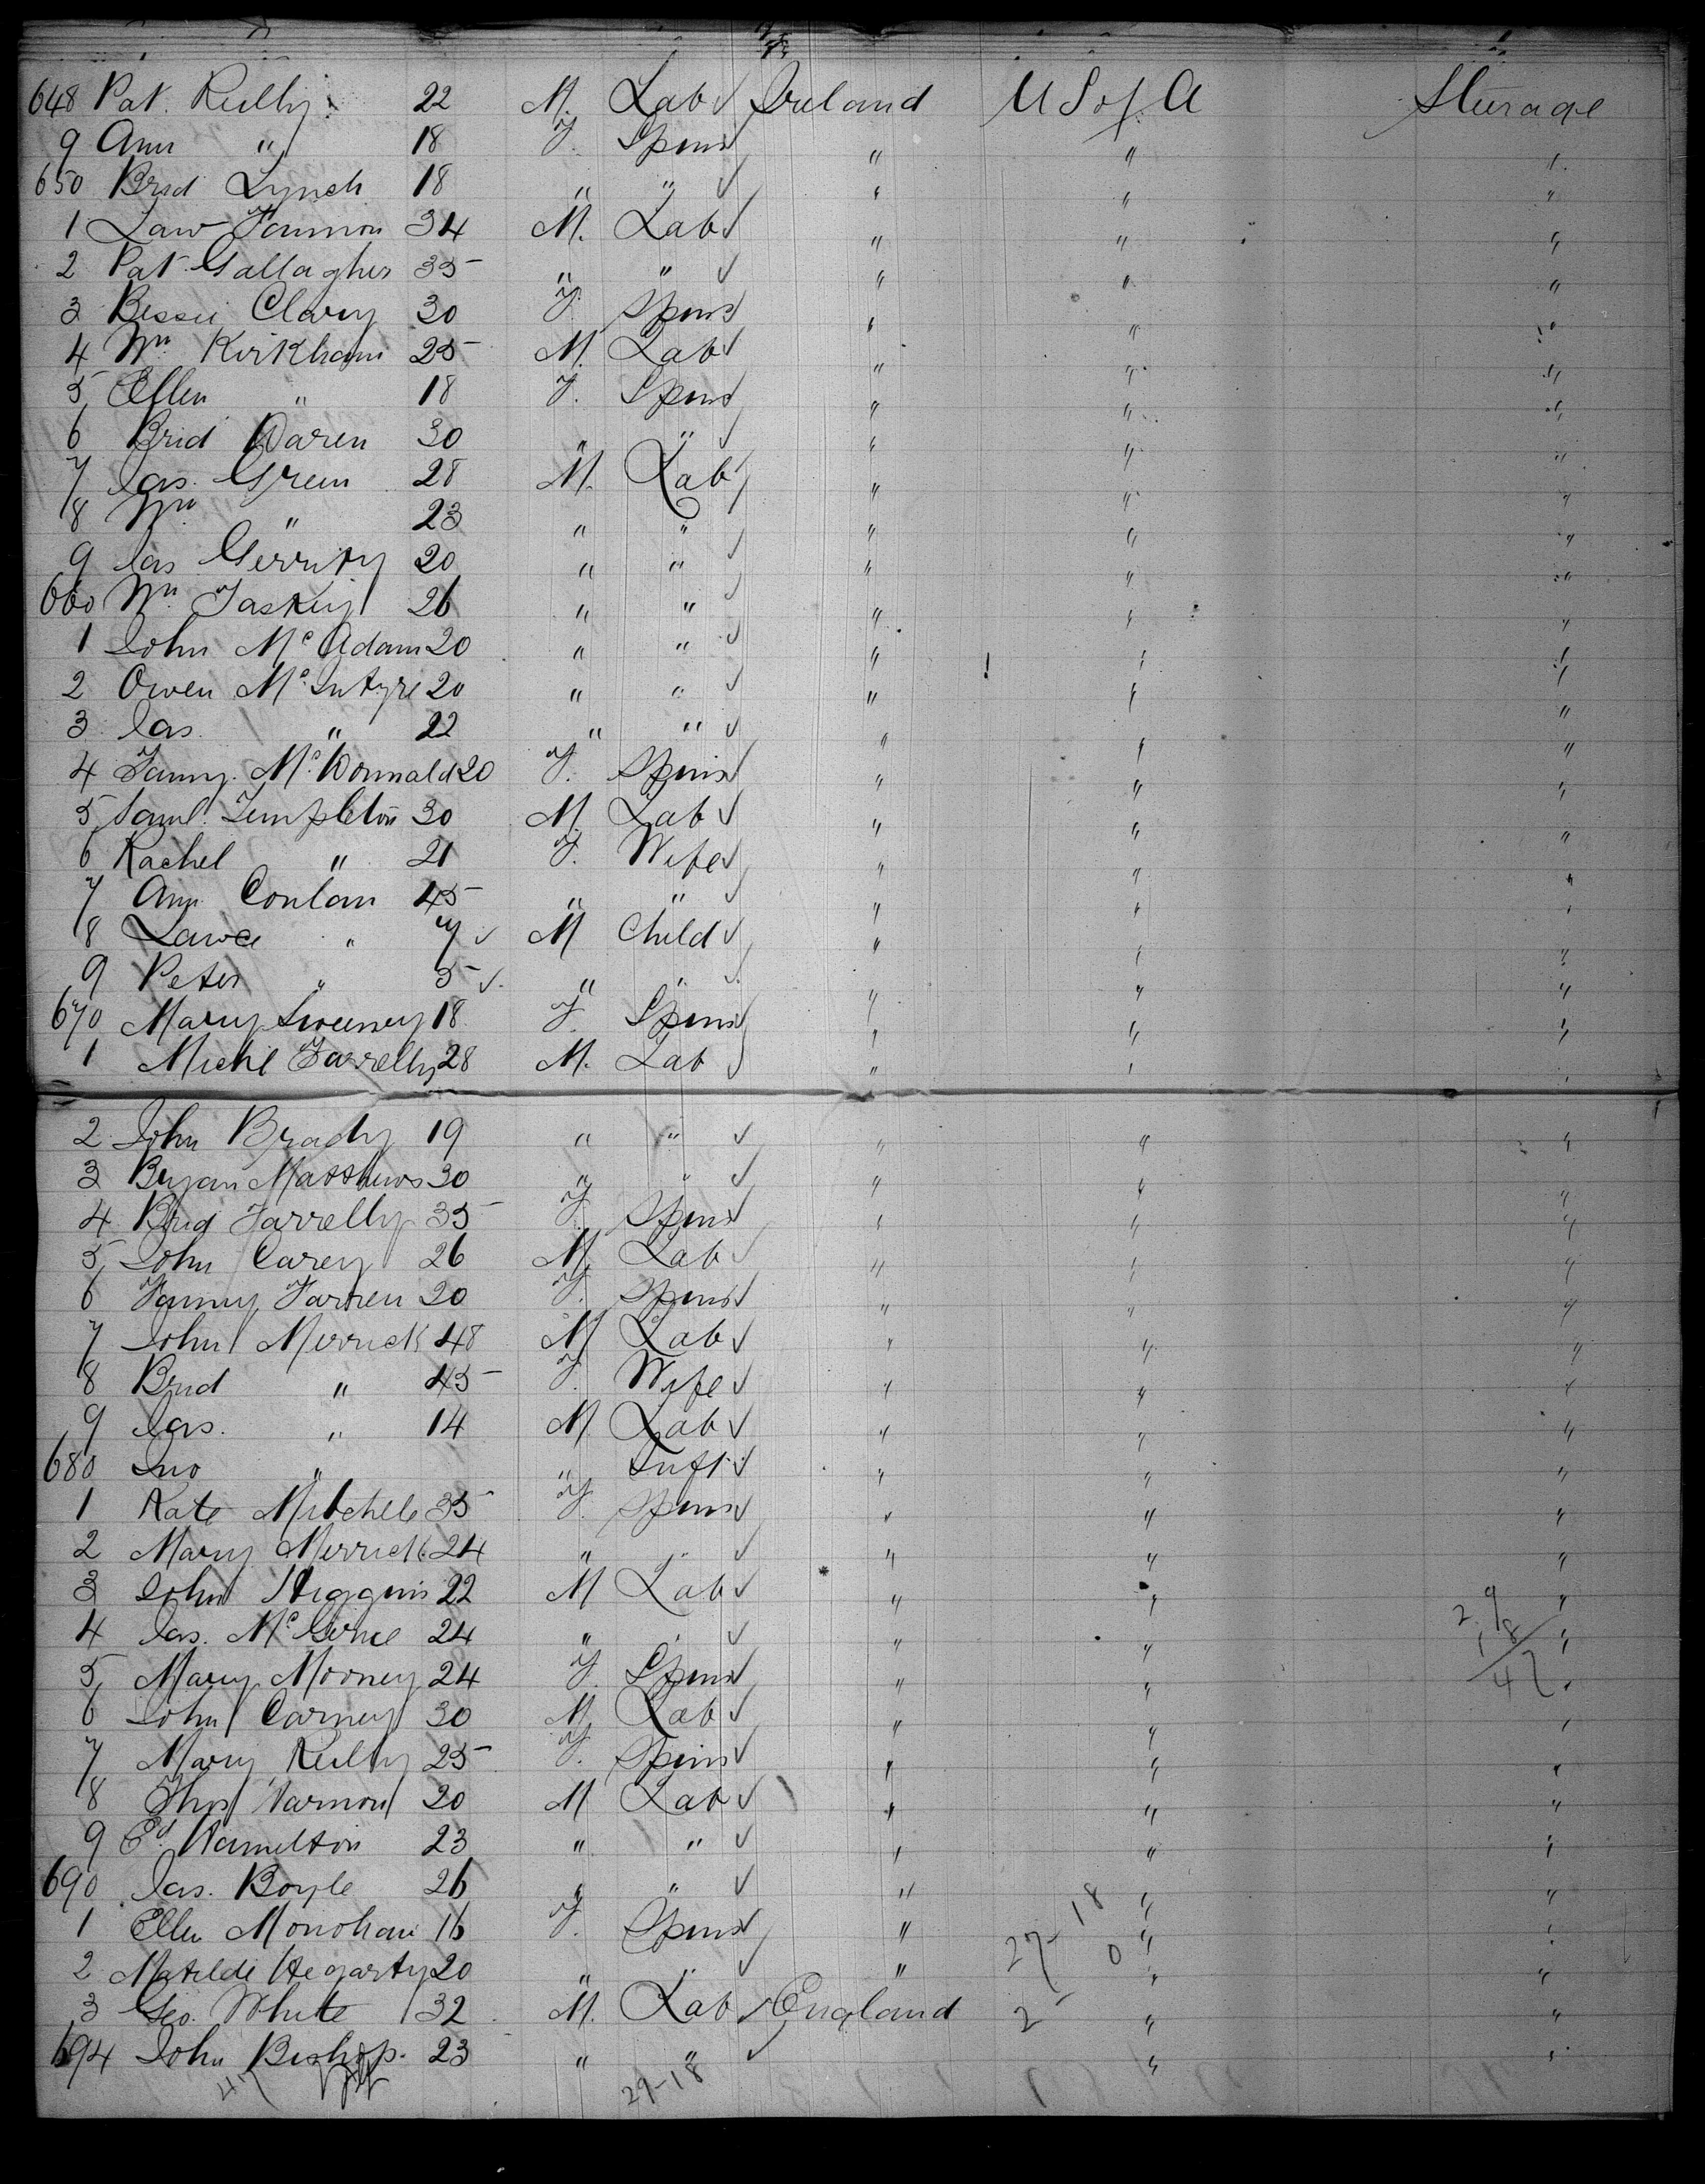 648 Pat. Reilly 22 M. Lab Ireland U S of A Steerage
9 Ann " 18 F. Spins " " "
650 Brid Lynch 18 " " " " "
1 Law Fannon 34 M. Lab " " "
2 Pat Gallagher 35 " " " " "
3 Bessie Clary 30 F. Spins " " "
4 Wm Kirkham 25 M. Lab " " "
5 Ellen " 18 F. Spins " " "
6 Brid Waren 30 " " " " "
7 Jas. Green 28 M. Lab " " "
8 Wm " 23 " " " " "
9 Jas Gerrity 20 " " " " "
660 Wm 26 " " " " "
1 John McAdam 20 " " " " "
2 Owen McIntyre 20 " " " " "
3 Jas. " 22 " " " " "
4 Fanny McDonnald 20 F. Spins " " "
5 Saml. Templeton 30 M. Lab " " "
6 Rachel " 21 F. Wife " " "
7 Ann Conlan 45 " " " " "
8 Lawce " 7 M Child " " "
9 Peter " 5 " " " " "
670 Mary Sweeney 18 F. Spins " " "
1 Michl Farrelly 28 M. Lab " " "
2 John Brady 19 " " " " "
3 Bryan Matthews 30 " " " " "
4 Brid Farrelly 35 F. Spins " " "
5 John Carey 26 M. Lab " " "
6 Fanny Farren 20 F. Spins " " "
7 John Merrick 48 M Lab " " "
8 Brid " 45 F. Wife " " "
9 Jas. " 14 M. Lab " " "
680 Jno " " Inft " " "
1 Kate Mitchell 35 F. Spins " " "
2 Mary Merrick 24 " " " " "
3 John Higgins 22 M Lab " " "
4 Jas. 24 " " " " "
5 Mary Mooney 24 F. Spins " " "
6 John Carney 30 M. Lab " " "
7 Mary Reilly 25 F. Spins " " "
8 Thos 20 M Lab " " "
9 Ed. Hamelton 23 " " " " "
690 Jas. Boyle 26 " " " " "
1 Ellen Monohan 16 F. Spins " " "
2 Matilde Hegarty 20 " " " " "
3 Geo. White 32 M. Lab England " "
694 John Bishop 23 " " " "
29-18